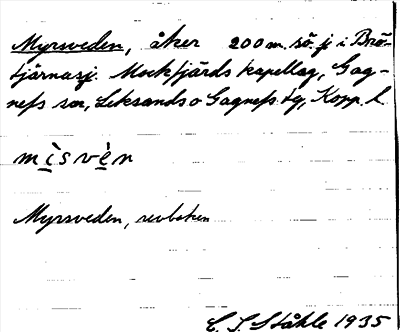 Myrsveden, åker 200 m. sö. j. i Brö-
tjärnasj. Mockfjärds kapellag, Gag-
nefs sn, Leksands o Gagnefs tg, Kopp. l.
mìsvèn
Myrsveden, revboken
E. I. Ståhle 1935